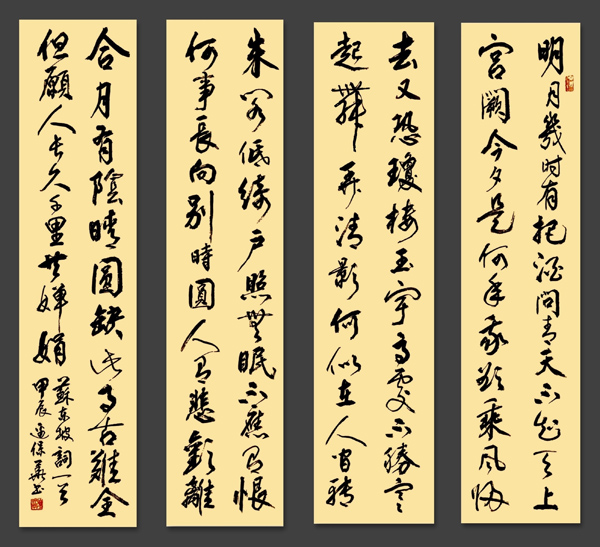 明月幾时有把酒問青天不知天上
宮闕今夕是何年我欲乘風歸
去又恐瓊樓玉宇高處不勝寒
起舞弄清影何似在人間轉
朱閣低綺戶照無眠不應有恨
何事長向別時圓人有悲歡離
合月有陰晴圓缺此事古難全
但願人長久千里共嬋娟
蘇東坡詞一首
甲辰保華書